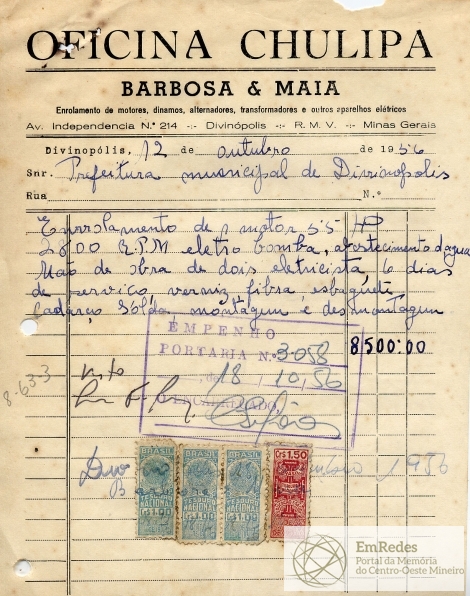 OFICINA CHULIPA
BARBOSA & MAIA
Enrolamento de motores, dinamos, alternadores, transformadores e outros aparelhos elétricos
Av. Independencia N.º 214 -:- Divinópolis -:- R. M. V. -:- Minas Gerais
Divinópolis, 12 de outubro de 1956
Snr. Prefeitura municipal de Divinopolis
Rua N.º
Enrrolamento de 1 motor 5,5 HP
2800 R.P.M eletro bomba, abastecimento d'agua
Mão de obra de dois eletricista, 6 dias
de serviço, verniz fibra, esbaguete
Cadarço Solda, montagem e desmontagem
8500:00
EMPENHO
PORTARIA N.º 3-058
18 / 10 / 56
8-633
Visto
BRASIL BRASIL BRASIL Cr$ 1,50
1956
TESOURO NACIONAL
Cr$ 1,00 Cr$ 1,00 Cr$ 1,00
EmRedes
Portal da Memória
do Centro-Oeste Mineiro